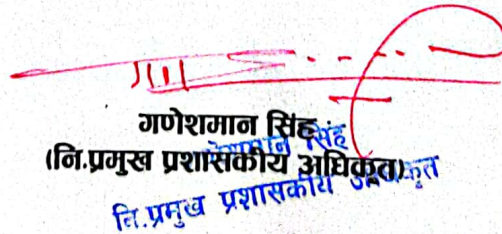 गणेशमान सिंह
(नि.प्रमुख प्रशासकीय अधिकृत)
गणेशमान सिंह
नि.प्रमुख प्रशासकीय अधिकृत